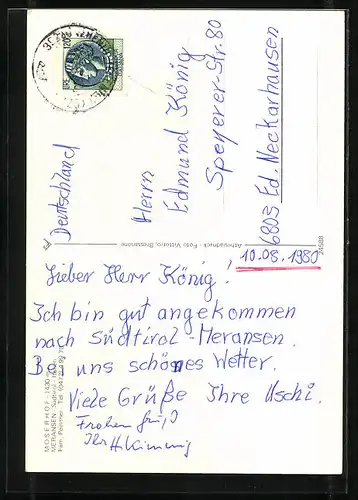 Deutschland
Herrn
Edmund König
Speyerer-Str. 80
6803 Ed. Neckarhausen
Athesiadruck - Foto Vittorio, Bressanone
10.08.1980
Lieber Herr König!
Ich bin gut angekommen
nach Südtirol-Meransen.
Bei uns schönes Wetter.
Viele Grüße Ihre Uschi.
Frohen Gruß
Ihr H.
MOSERHOF - 1430 m
MERANSEN - Südtirol - Italien
Fam.